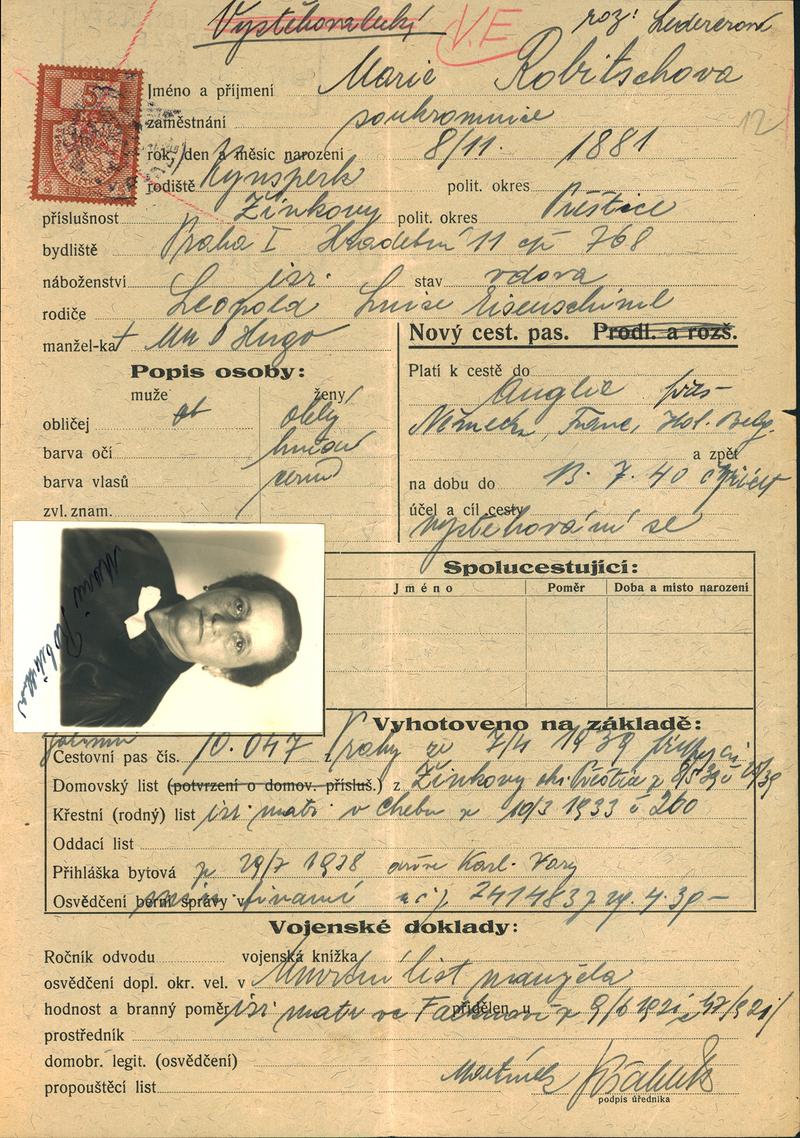 Vystěhovalecký V.E roz: Ledererová
Jméno a příjmení Marie Robitschova
zaměstnání soukromnice
12
rok, den a měsíc narození 8/11. 1881
rodiště Kynsperk polit. okres
příslušnost Žinkovy polit. okres Přeštice
bydliště Praha I Hradební 11 čp 768
náboženství isr. stav vdova
rodiče Leopold Luise Eisenschiml
manžel-ka † Hugo
Nový cest. pas. Prodl. a rozš.
Popis osoby:
muže ženy
obličej oblý
barva očí hnědé
barva vlasů černé
zvl. znam.
Platí k cestě do Anglie přes
Německo, Franc, Hol. Belg.
a zpět
na dobu do 13. 7. 40
účel a cíl cesty
vystěhování se
Marie Robitschova
Spolucestující:
Jméno Poměr Doba a místo narození
Vyhotoveno na základě:
Cestovní pas čís. 10.047 z Prahy ze 7/4 1939
Domovský list (potvrzení o domov. přísluš.) z Žinkovy
Křestní (rodný) list isr. matr. v Chebu z 10/3 1933 č 260
Oddací list
Přihláška bytová z 29/7 1938 Karl. Vary
Osvědčení berní správy v
Vojenské doklady:
Ročník odvodu vojenská knížka
osvědčení dopl. okr. vel. v Úmrtní list manžela
hodnost a branný poměr isr. matr. ve přidělen u
prostředník
domobr. legit. (osvědčení)
propouštěcí list
podpis úředníka